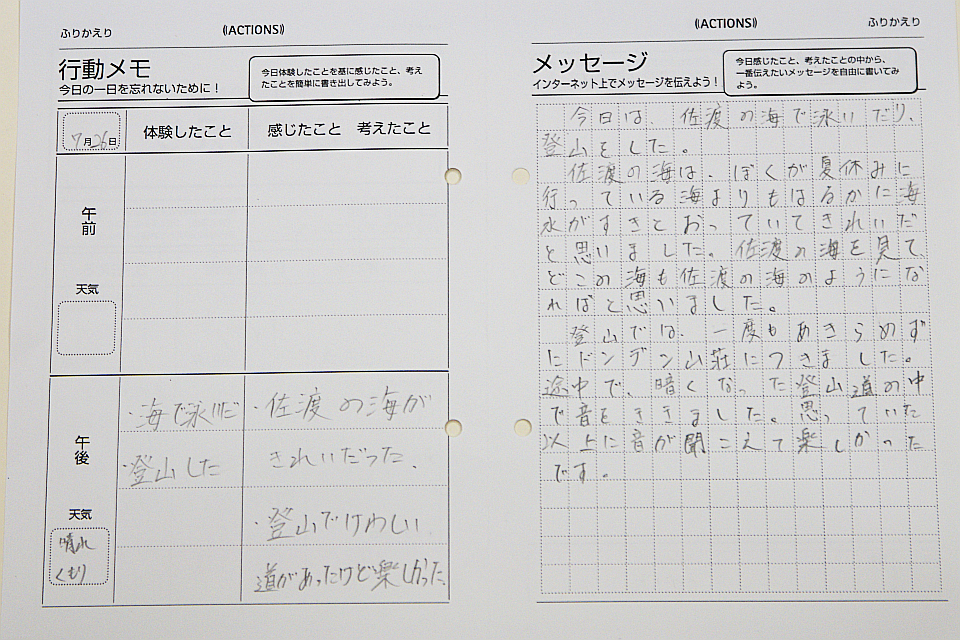 ふりかえり
((ACTIONS))
行動メモ
今日の一日を忘れないために！
今日体験したことを基に感じたこと、考え
たことを簡単に書き出してみよう。
7月26日
体験したこと
感じたこと 考えたこと
午前
天気
午後
・海で泳いだ
・登山した
・佐渡の海が
きれいだった。
・登山でけわしい
道があったけど楽しかった。
天気
晴れ
くもり
((ACTIONS))
ふりかえり
メッセージ
インターネット上でメッセージを伝えよう！
今日感じたこと、考えたことの中から、
一番伝えたいメッセージを自由に書いてみ
よう。
今日は、佐渡の海で泳いだり、
登山をした。
佐渡の海は、ぼくが夏休みに
行っている海よりもはるかに海
水がすきとおっていてきれいだ
と思いました。佐渡の海を見て、
どこの海も佐渡の海のようにな
ればと思いました。
登山では、一度もあきらめず
にドンデン山荘につきました。
途中で、暗くなった登山道の中
で音をききました。思っていた
以上に音が聞こえて楽しかった
です。